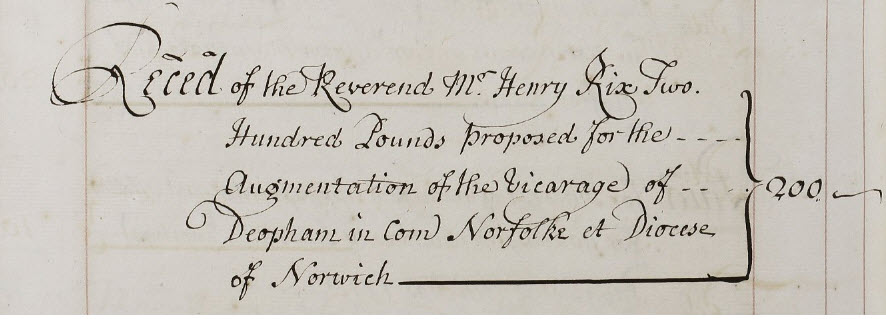 Reced of the Reverend Mr. Henry Rix Two.
Hundred Pounds proposed for the - - -
Augmentation of the Vicarage of - - - 200. -
Deopham in Com Norfolke et Diocese
of Norwich